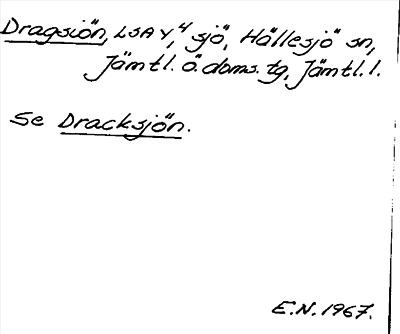 Dragsiön, LSA Y, 4 sjö, Hällesjö sn,
Jämtl. Ö. doms. tg, Jämtl. l.
Se Dracksjön.
E.N. 1967.